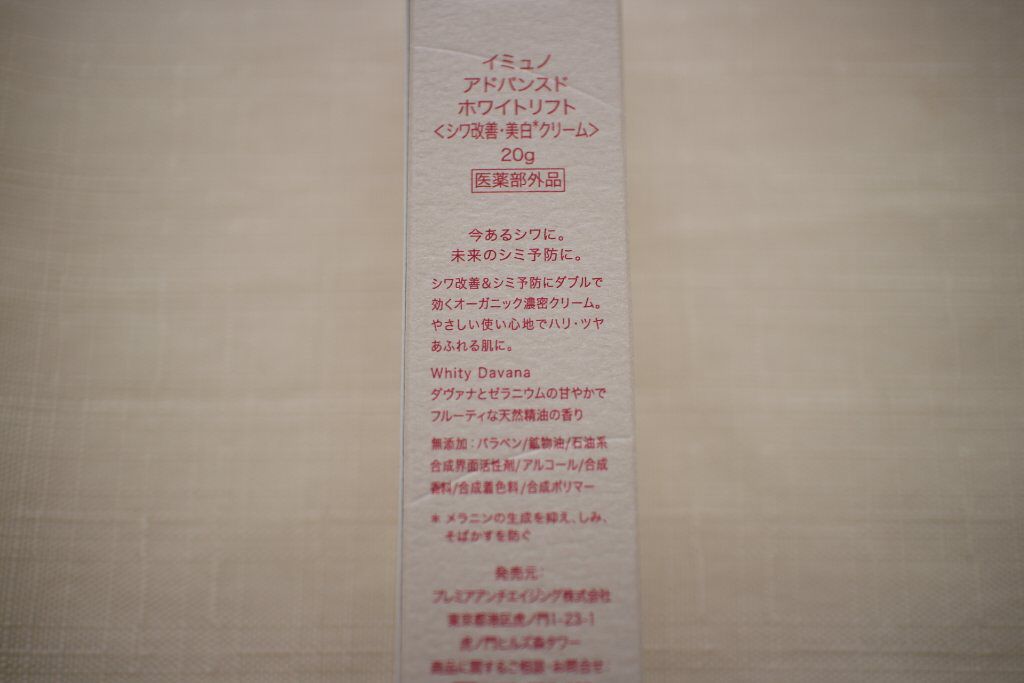 イミュノ
アドバンスド
ホワイトリフト
＜シワ改善・美白*クリーム＞
20g
医薬部外品
今あるシワに。
未来のシミ予防に。
シワ改善＆シミ予防にダブルで
効くオーガニック濃密クリーム。
やさしい使い心地でハリ・ツヤ
あふれる肌に。
Whity Davana
ダヴァナとゼラニウムの甘やかで
フルーティな天然精油の香り
無添加：パラベン/鉱物油/石油系
合成界面活性剤/アルコール/合成
香料/合成着色料/合成ポリマー
* メラニンの生成を抑え、しみ、
そばかすを防ぐ
発売元：
プレミアアンチエイジング株式会社
東京都港区虎ノ門1-23-1
虎ノ門ヒルズ森タワー
商品に関するご相談・お問合せ